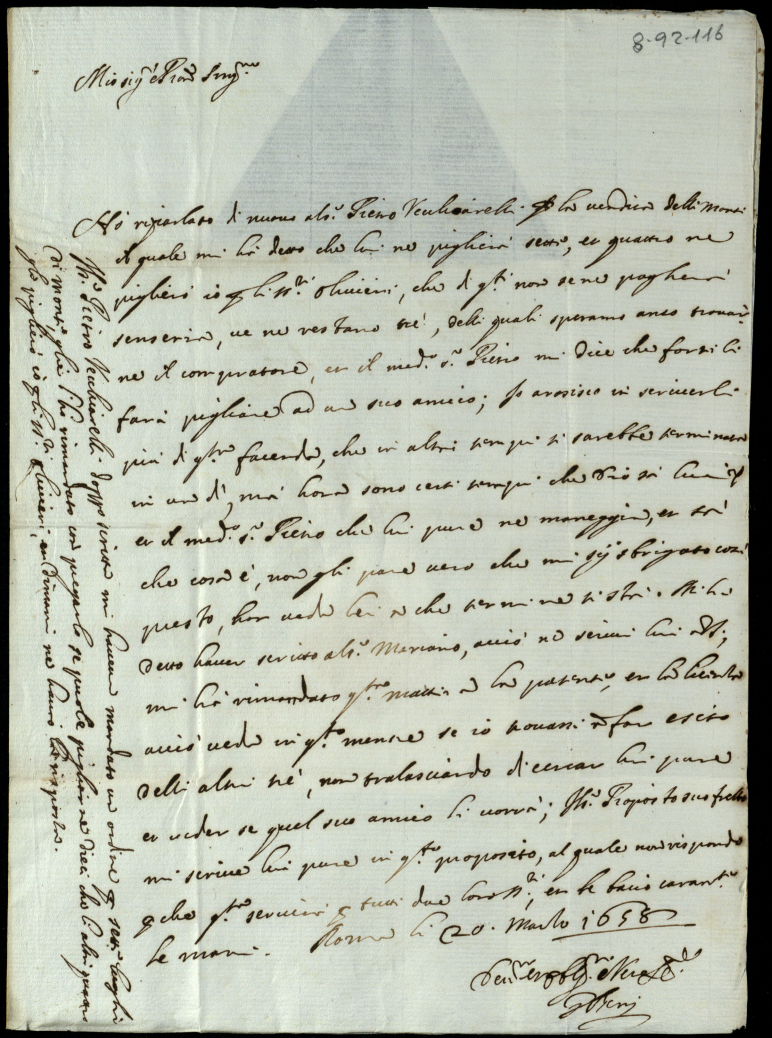 8-92-116
Mio sig.r e Pron Sing.mo
Hò riparlato di nuovo al s.r Pietro Vecchiarelli p la vendita delli Monti
il quale mi hà detto che lui ne piglierà sette, et quattro ne
piglierò io p li ss.ri Olivieri, che di q.ti non se ne pagherà
senseria, ve ne restano trè, delli quali speramo anco trovar
ne il compratore, et il med.o s.r Pietro mi dice che forsi li
farà pigliare ad un suo amico; Io arosisco in scriverli
più di q.ta facenda, che in altri tempi si sarebbe terminata
in un dì, mà hora sono certi tempi che Dio sà
et il med.o s.r Pietro che lui pure ne maneggia, et sà
che cosa è, non gli pare vero che mi sij sbrigato così
presto, hor veda lei a che termine si stà. Mi hà
detto haver scritto al s.r Mariano, acciò ne scrivi lui à
mi hà rimandato q.ta matt.a la patente, et la licenza
acciò veda in q.to mentre se io trovassi à far esito
delli altri trè, non tralasciando di cercar lui pure
et veder se quel suo amico li vorrà; Il s.r Proposto suo frello
mi scrive lui pure in q.to proposito, al quale non rispondo
p che q.ta servirà p tutti due loro ss.ri, et li bacio
le mani. Roma li 20. Marzo 1658
Dev.mo et obl.mo
Il s.r Pietro Vecchiarelli doppo scritta mi haveva mandato un ordine p sette luoghi
di monti, che l'hò rimandato con pregarlo se vuole pigliarne dieci che li altri quattro
gli piglierò io p li ss.ri Olivieri, et dimani ne haverò la risposta.